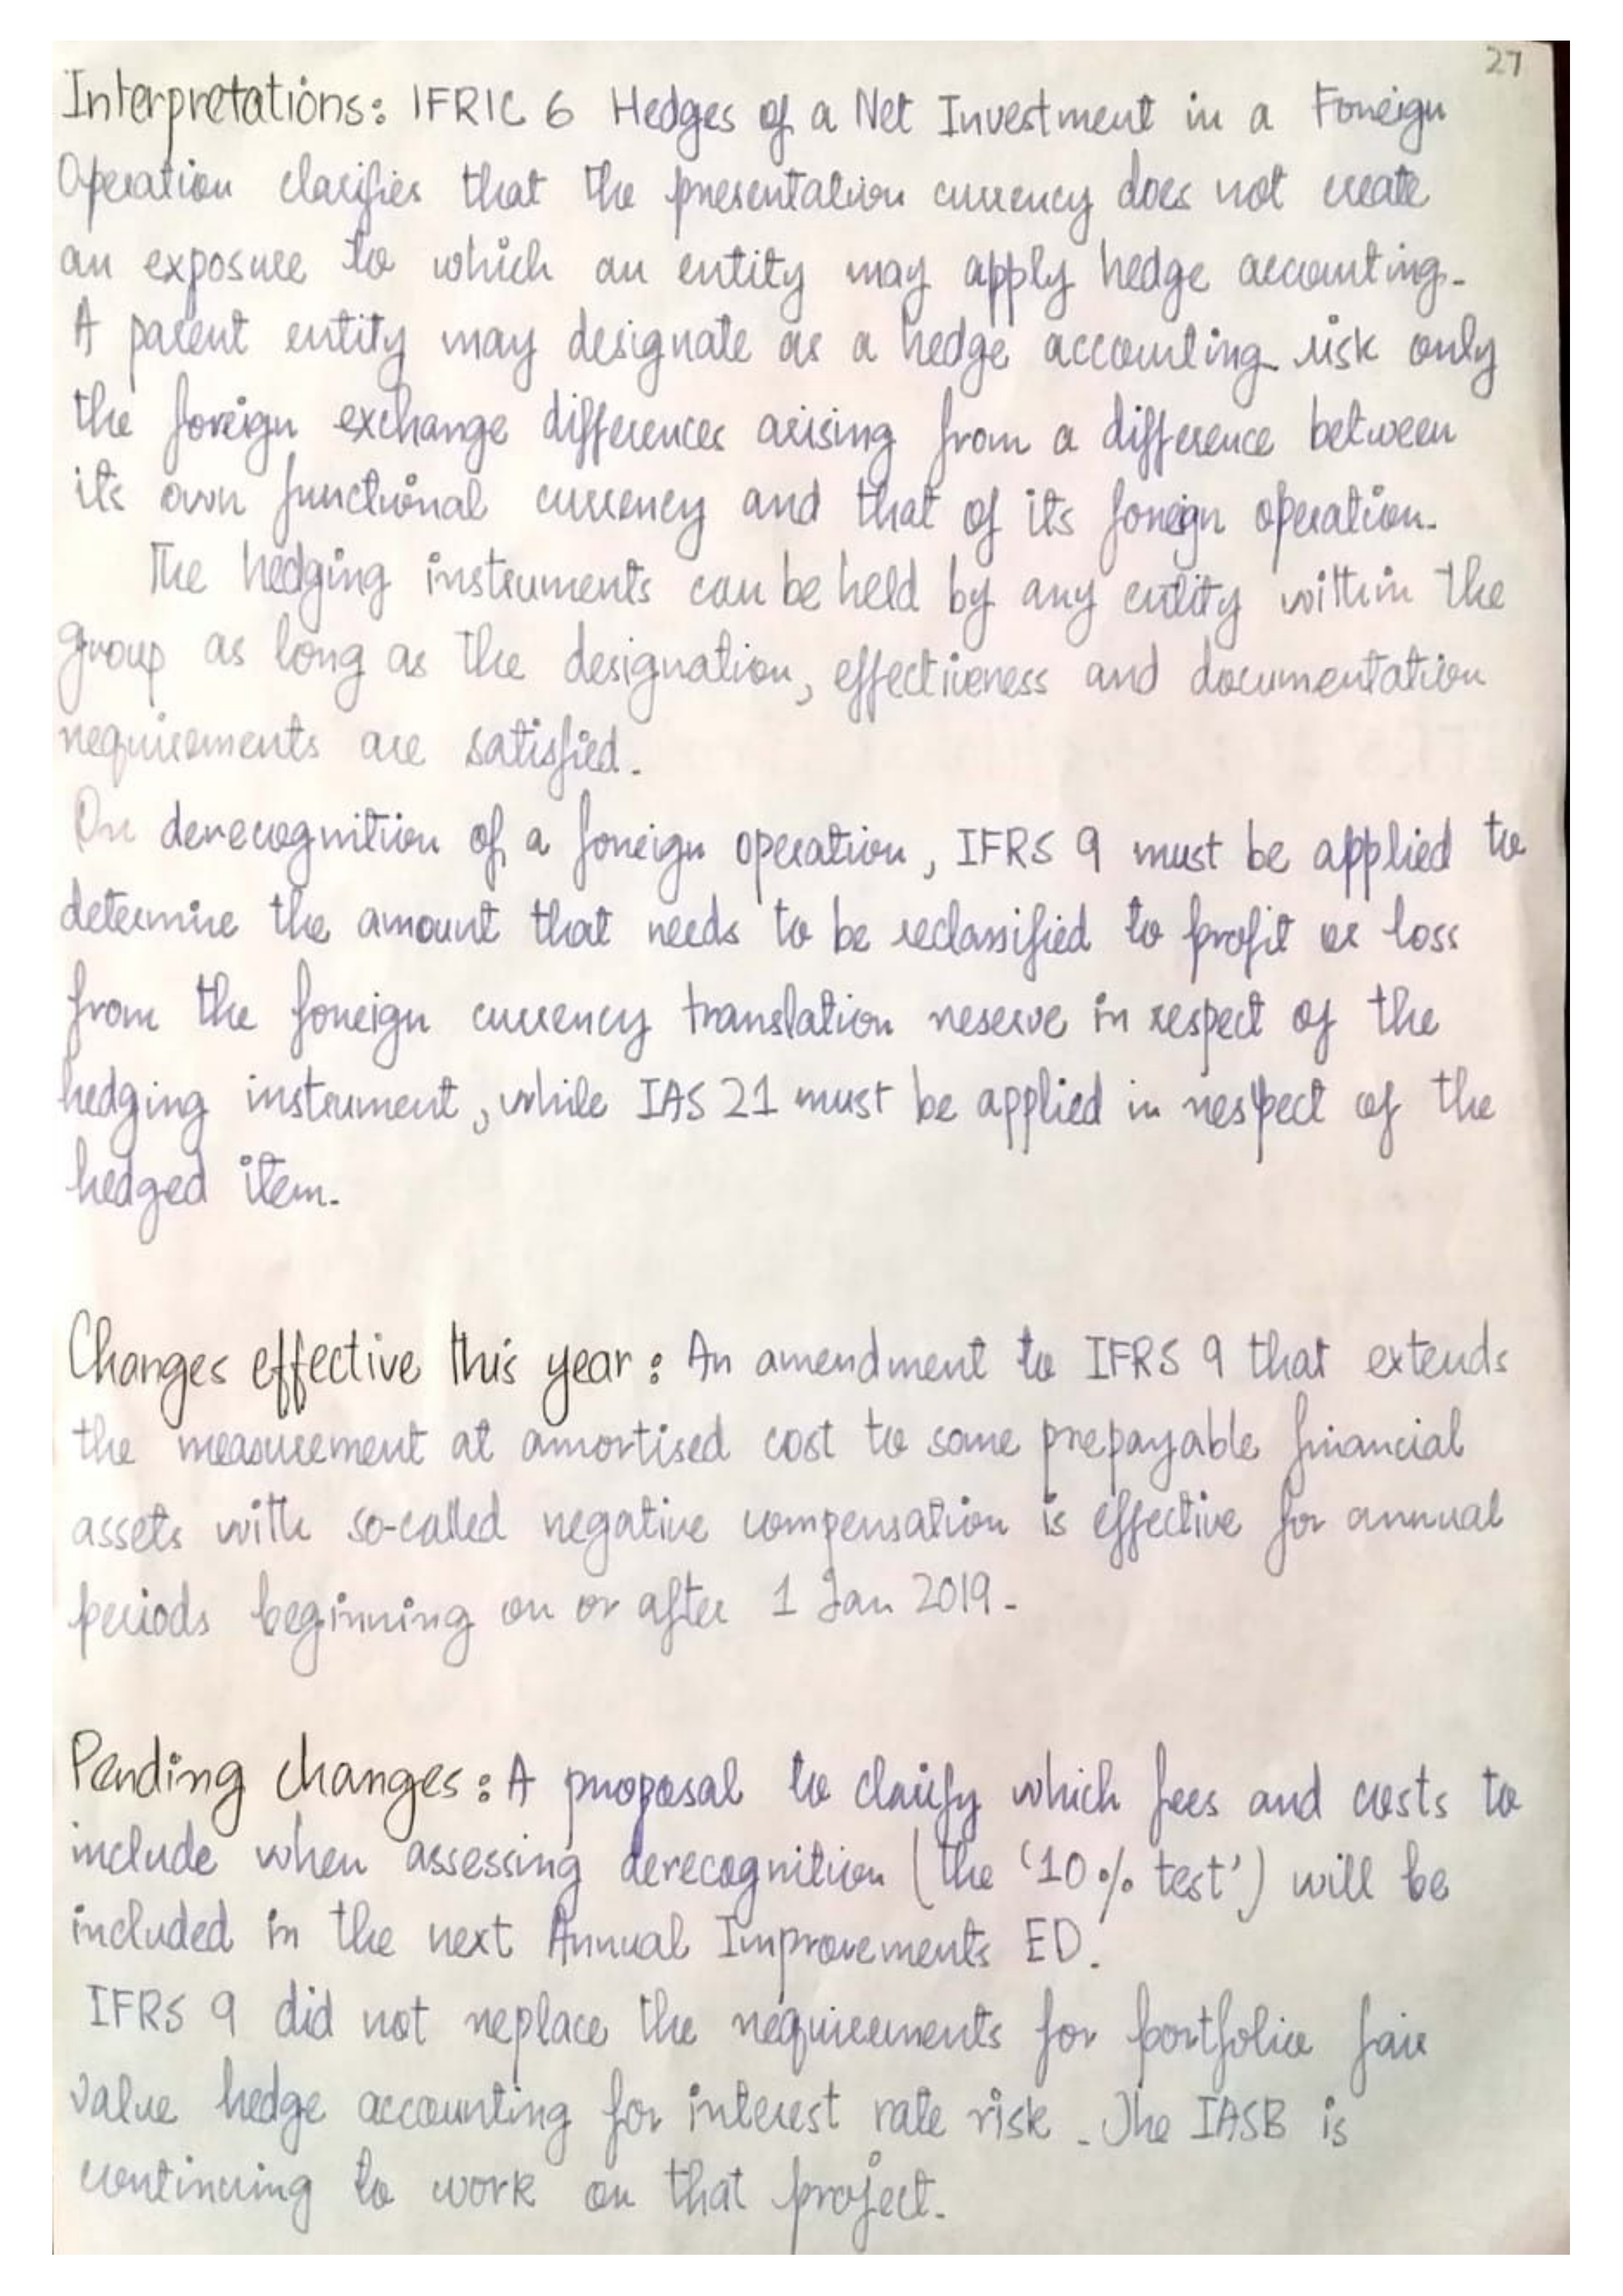 27
Interpretations: IFRIC 6 Hedges of a Net Investment in a Foreign
Operation clarifies that the presentation currency does not create
an exposure to which an entity may apply hedge accounting.
A parent entity may designate as a hedge accounting risk only
the foreign exchange differences arising from a difference between
its own functional currency and that of its foreign operation.
The hedging instruments can be held by any entity within the
group as long as the designation, effectiveness and documentation
requirements are satisfied.
On derecognition of a foreign operation, IFRS 9 must be applied to
determine the amount that needs to be reclassified to profit or loss
from the foreign currency translation reserve in respect of the
hedging instrument, while IAS 21 must be applied in respect of the
hedged item.
Changes effective this year: An amendment to IFRS 9 that extends
the measurement at amortised cost to some prepayable financial
assets with so-called negative compensation is effective for annual
periods beginning on or after 1 Jan 2019.
Pending changes: A proposal to clarify which fees and costs to
include when assessing derecognition (the '10% test') will be
included in the next Annual Improvements ED.
IFRS 9 did not replace the requirements for portfolio fair
value hedge accounting for interest rate risk. The IASB is
continuing to work on that project.